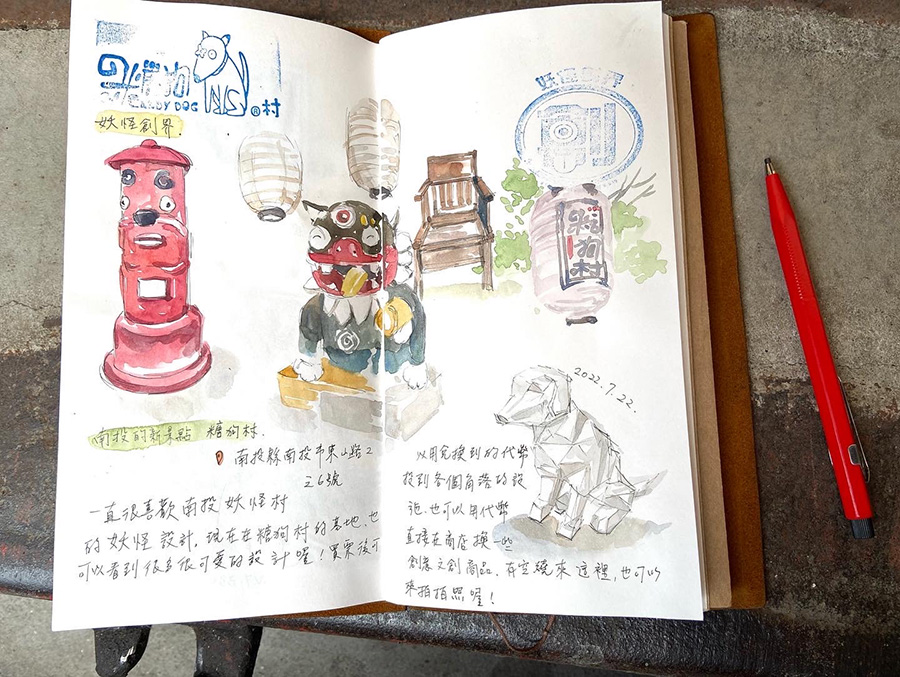 糖狗
CANDY DOG ®村
妖怪創界.
妖怪創界
糖狗村
2022.7.22.
南投的新景點 糖狗村.
南投縣南投市東山路2
之6號
一直很喜歡南投妖怪村
的妖怪設計,現在在糖狗村的基地,也
可以看到很多很可愛的設計喔!買票後可
以用兌換到的代幣
投到各個角落的設
施,也可以用代幣
直接在商店換一些
創意文創商品.有空繞來這裡,也可以
來拍拍照喔!